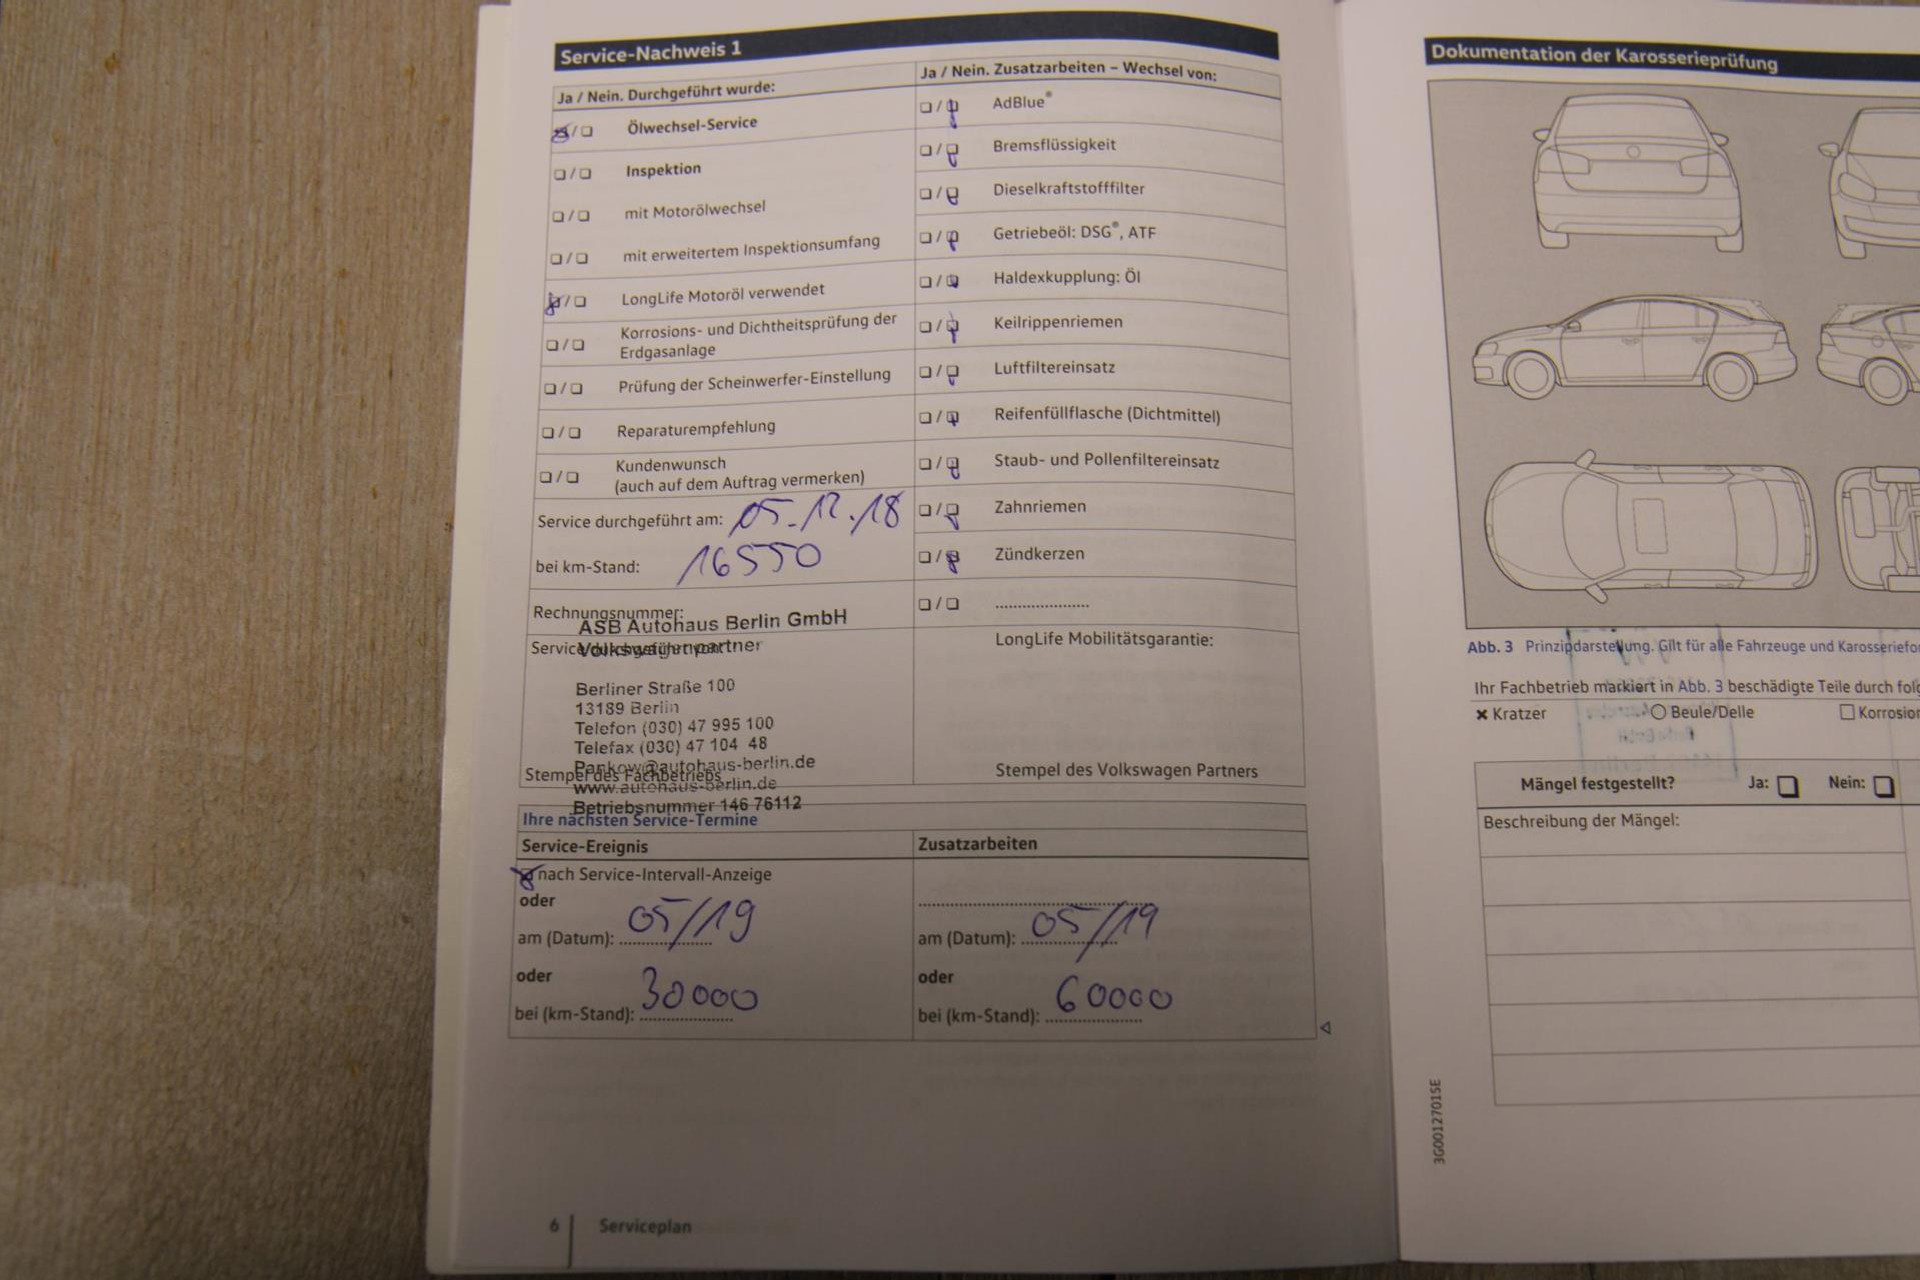 Service-Nachweis 1
Ja / Nein. Durchgeführt wurde:
Ölwechsel-Service
Inspektion
mit Motorölwechsel
mit erweitertem Inspektionsumfang
LongLife Motoröl verwendet
Korrosions- und Dichtheitsprüfung der
Erdgasanlage
Prüfung der Scheinwerfer-Einstellung
Reparaturempfehlung
Kundenwunsch
(auch auf dem Auftrag vermerken)
Service durchgeführt am: 05.12.18
bei km-Stand: 16550
Rechnungsnummer:
ASB Autohaus Berlin GmbH
Volkswagenpartner
Berliner Straße 100
13189 Berlin
Telefon (030) 47 995 100
Telefax (030) 47 104 48
Pankow@autohaus-berlin.de
Stempel des Fachbetriebs
www.autohaus-berlin.de
Betriebsnummer 146 76112
Ja / Nein. Zusatzarbeiten – Wechsel von:
AdBlue®
Bremsflüssigkeit
Dieselkraftstofffilter
Getriebeöl: DSG®, ATF
Haldexkupplung: Öl
Keilrippenriemen
Luftfiltereinsatz
Reifenfüllflasche (Dichtmittel)
Staub- und Pollenfiltereinsatz
Zahnriemen
Zündkerzen
LongLife Mobilitätsgarantie:
Stempel des Volkswagen Partners
Ihre nächsten Service-Termine
Service-Ereignis
nach Service-Intervall-Anzeige
oder
am (Datum): 05/19
oder
bei (km-Stand): 30000
Zusatzarbeiten
am (Datum): 05/19
oder
bei (km-Stand): 60000
6 Serviceplan
Dokumentation der Karosserieprüfung
Abb. 3 Prinzipdarstellung. Gilt für alle Fahrzeuge und
Ihr Fachbetrieb markiert in Abb. 3 beschädigte Teile durch
Kratzer Beule/Delle
Mängel festgestellt? Ja: Nein:
Beschreibung der Mängel:
3G0012701SE